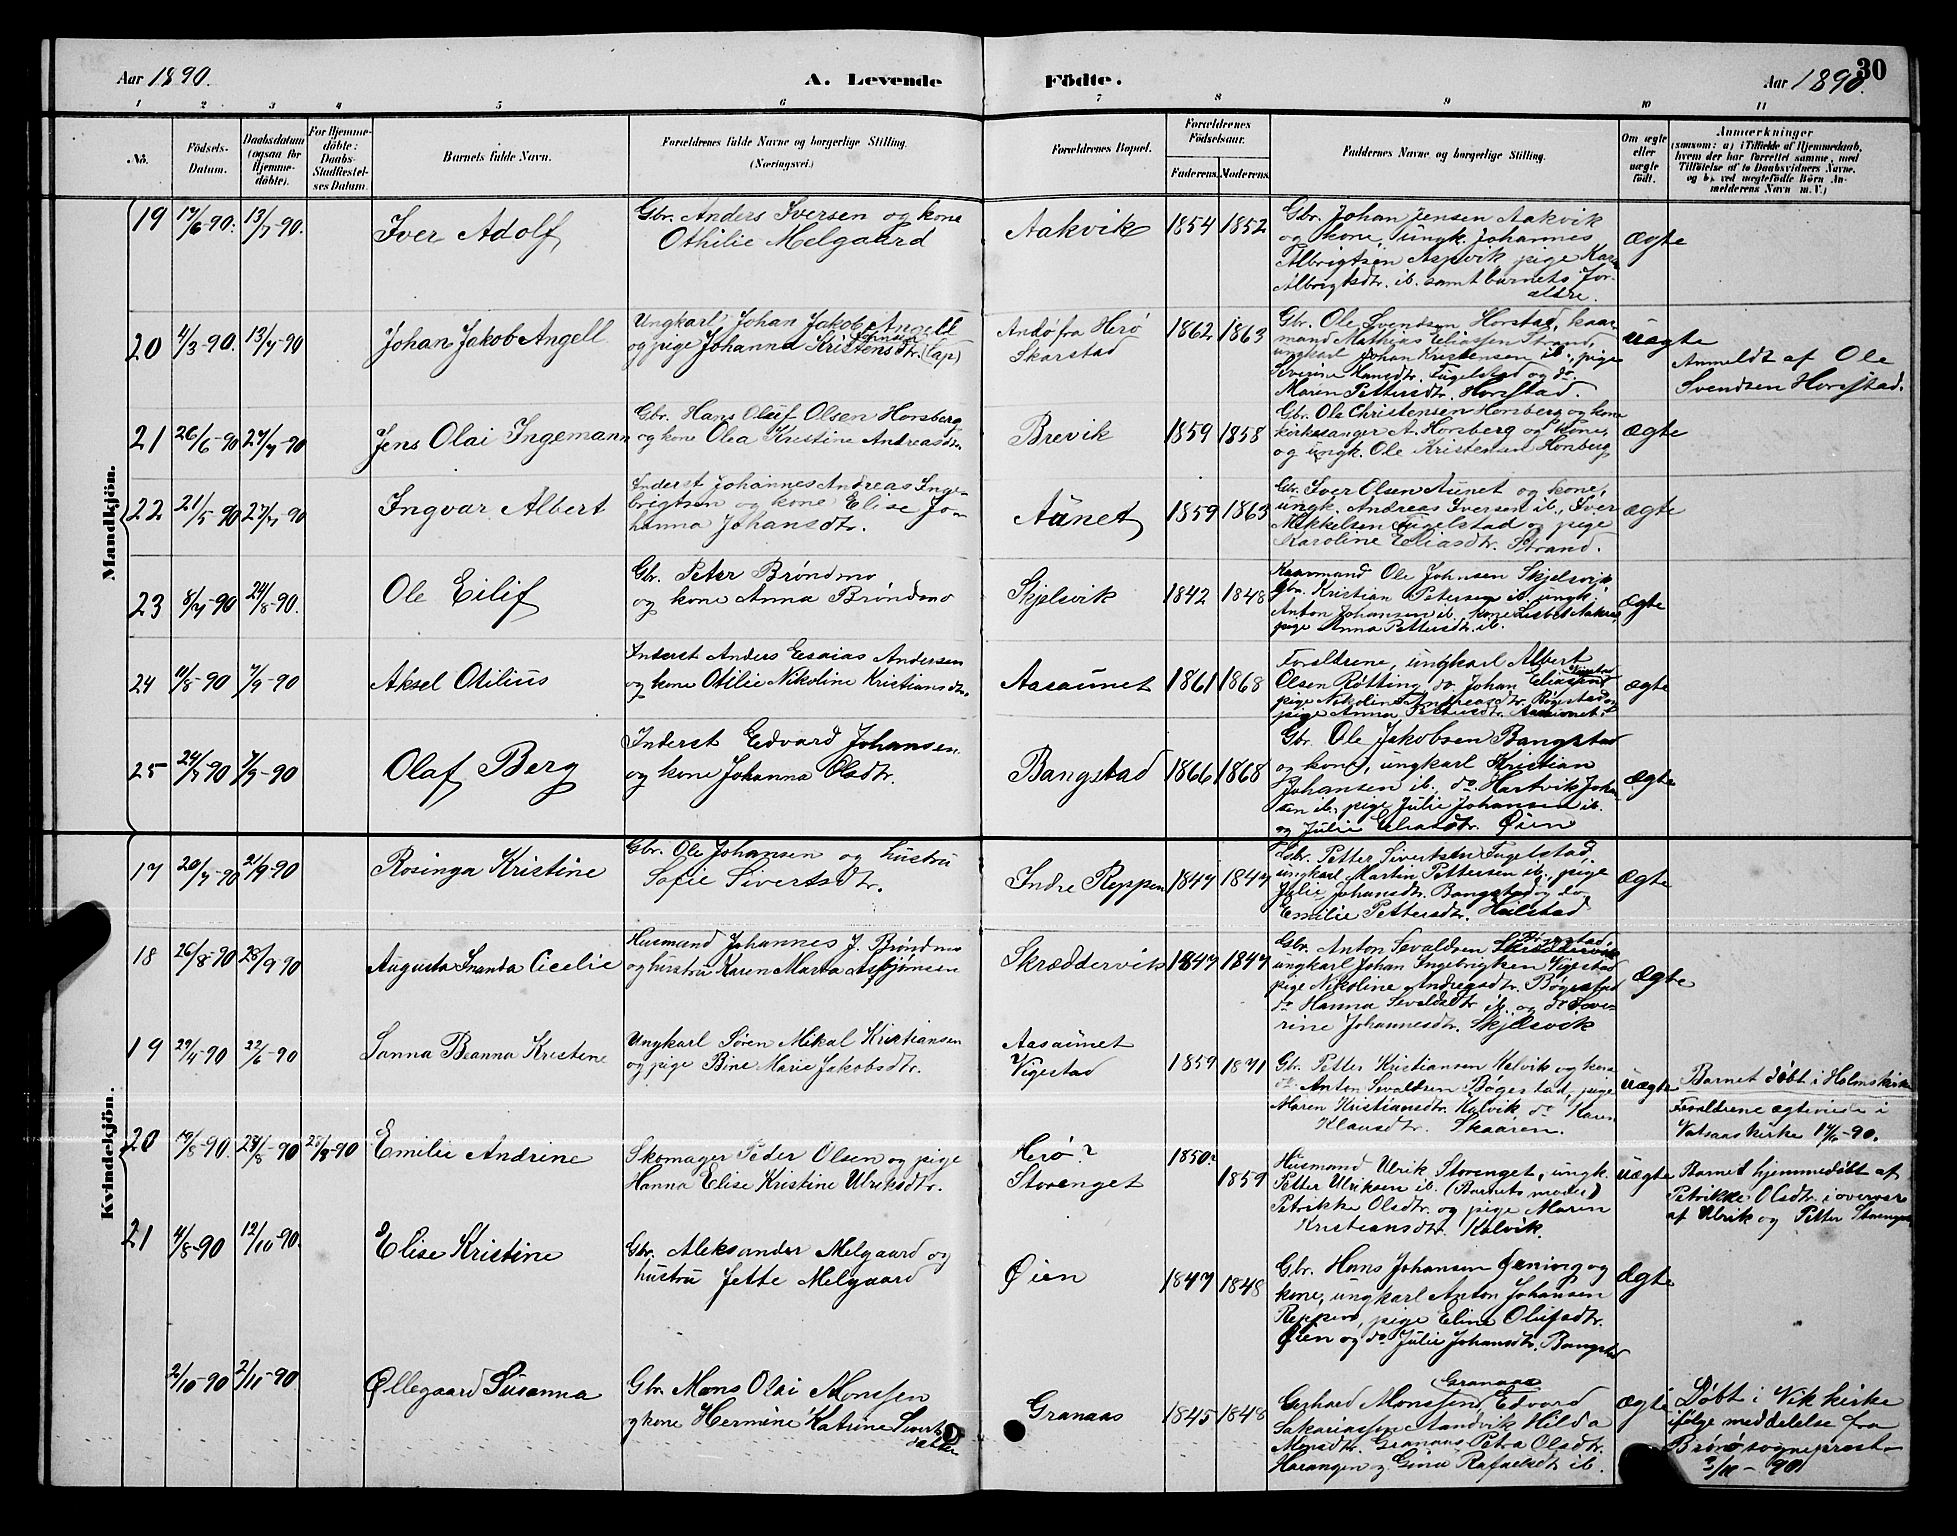 Aar 1890. A. Levende Födte. Aar 1890. 30
1 2 3 4 5 6 7 8 9 10 11
No. Födsels-Datum. Daabsdatum (ogsaa for Hjemme-döbte). For Hjemme-döbte: Daabs-Stadfæstel-ses Datum. Barnets fulde Navn. Forældrenes fulde Navne og borgerlige Stilling. (Næringsvei.) Forældrenes Bopæl. Forældrenes Födselsaar. Faderens. Moderens. Faddernes Navne og borgerlige Stilling. Om ægte eller uægte födt. Anmærkninger (saasom: a) i Tilfælde af Hjemmedaab, hvem der har forrettet samme, med Tilföielse af to Daabsvidners Navne, og b) ved uægtefödte Börn An-melderens Navn m. V.)
Mandkjön.
19 17/6-90. 13/7-90. Iver Adolf
Gbr. Anders Iversen og kone
Othilie Melgaard
Aakvik 1854 1852
Gbr. Johan Jensen Aakvik
og kone, ungk. Johannes
Albrigtsen Aspvik pige Karen
Albrigtsdtr. ib. samt barnets for-
ældre.
ægte
20 4/3-90. 13/7-90 Johan Jakob Angell
Ungkarl Johan Jakob Angell
og pige Johanna Kristensdtr. (Lap)
Andø fra Herø
Skarstad
1862 1863
Gbr. Ole Svendsen Horstad, kaar-
mand Mathias Eliassen Strand,
ungkarl Johan Kristensen ib., pige
Severine Hansdtr. Fugelstad og do
Maren Pettersdtr. Horstad.
uægte
Anmeldt af Ole
Svendsen Horstad.
21 26/6-90 27/7-90 Jens Olai Ingemann
Gbr. Hans Oluf Olsen Horsberg
og kone Olea Kristine Andreasdtr.
Brevik 1859 1858
Gbr. Ole Christensen Horsberg og kone
kirkesanger A. Horsberg og kone,
og ungk. Ole Kristensen Horsberg
ægte
22 21/5-90 27/7-90 Ingvar Albert
Inderst Johannes Andreas Inge-
brigtsen og kone Elise Jo-
hanna Johansdtr.
Aunet 1859 1863
Gbr. Iver Olsen Aunet og kone,
ungk. Andreas Iversen ib., Iver
Mikkelsen Fugelstad og pige
Karoline Eliasdtr. Strand.
ægte
23 8/7-90 24/8-90. Ole Eilif
Gbr. Peter Brøndmo
og kone Anna Brøndmo
Skjelsvik 1842 1848
Kaarmand Ole Johnsen Skjelsvik
Gbr. Kristian Petersen ib., ungk.
Anton Johansen ib., kone Lisbet Aakvik,
pige Anna Pettersdtr. ib.
ægte
24 11/8-90 7/9-90 Aksel Otilius
Inderst Anders Esaias Andersen
og kone Otilie Nikoline Kristiansdtr.
Aasaunet 1861 1868
Forældrene, ungkarl Albert
Olsen Røtting, do. Johan Eliassen
pige Nikoline Andreasdtr. Bøgestad og
pige Anna Petersdtr. Aasaunet.
ægte
25 24/7-90 7/9-90 Olaf Berg
Inderst Edvard Johansen
og kone Johanna Olsdtr.
Bangstad 1866 1868
Gbr. Ole Jakobsen Bangstad
og kone, ungkarl Kristian
Johansen ib., do. Hartvik Johan-
sen ib., pige Julie Johansen ib.
og Julie Eliasdtr. Øien
ægte
Kvindekjön.
17 20/7-90 21/9-90 Rosinga Kristine
Gbr. Ole Johansen og hustru
Sofie Sivertsdtr.
Indre Reppen 1847 1847
Gbr. Petter Sivertsen Fugelstad,
ungkarl Martin Pettersen ib., pige
Julie Johansdtr. Bangstad og do
Emilie Pettersdtr. Heilstad
ægte
18 26/8-90 28/9-90 Augusta Inanda Cicelie
Husmand Johannes J. Brøndmo
og hustru Karen Marta Asbjørnsen
Skræddervik 1847 1847
Gbr. Anton Sevaldsen Bøgestad,
ungkarl Johan Ingebrigtsen Vigestad
pige Nikoline Andreasdtr. Bøgestad
do Hanna Sevaldsdtr ib. og do Seve-
rine Johannesdtr. Skjelsvik
ægte
19 29/4-90 22/6-90 Sanna Beanna Kristine
Ungkarl Søren Mikal Kristiansen
og pige Bine Marie Jakobsdtr.
Aasaunet
Vigestad
1859 1871
Gbr. Petter Kristiansen Kalvik og kone
do Anton Sevaldsen Bøgestad, pige
Maren Kristiansdtr. Kalvik, do Karen
Klausdtr. Skaaren.
uægte
Barnet døbt i Holms kirke
Forældrene ægteviede i
Vatsaas kirke 17/6-90.
20 19/8-90. 24/8-90 28/9-90 Emilie Andrine
Skomager Peder Olsen og pige
Hanna Elise Kristine Ulriksdtr.
Herø?
Storenget
1850? 1859
Husmand Ulrik Storenget, ungk.
Petter Ulriksen ib. (Barnets moder)
Petrikke Olsdtr. og pige Maren
Kristiansdtr. Kalvik.
uægte
Barnet hjemmedøbt af
Petrikke Olsdtr. i overvær
af Ulrik og Petter Storenget
21 4/8-90 12/10-90. Elise Kristine
Gbr. Aleksander Melgaard og
hustru Jette Melgaard
Øien 1847 1848
Gbr. Hans Johansen og
kone, ungkarl Anton Johansen
Reppen, pige Eline Olufsdtr.
Øien og do Julie Johansdtr. Bangstad
ægte
2/10-90 2/11-90. Øllegaard Susanna
Gbr. Mons Olai Monssen
og kone Hermine Katrine Siverts
datter
Granaas 1845 1848
Granaas
Gerhard Monssen, Edvard
Sakariassen Sandvik Hilda
Monsdtr. Granaas, Petra Olsdtr.
Harangen og Gina Rafaelsdtr ib.
ægte
Døbt i Vik kirke
ifølge meddelelse fra
Brønø sogneprest
3/11-90